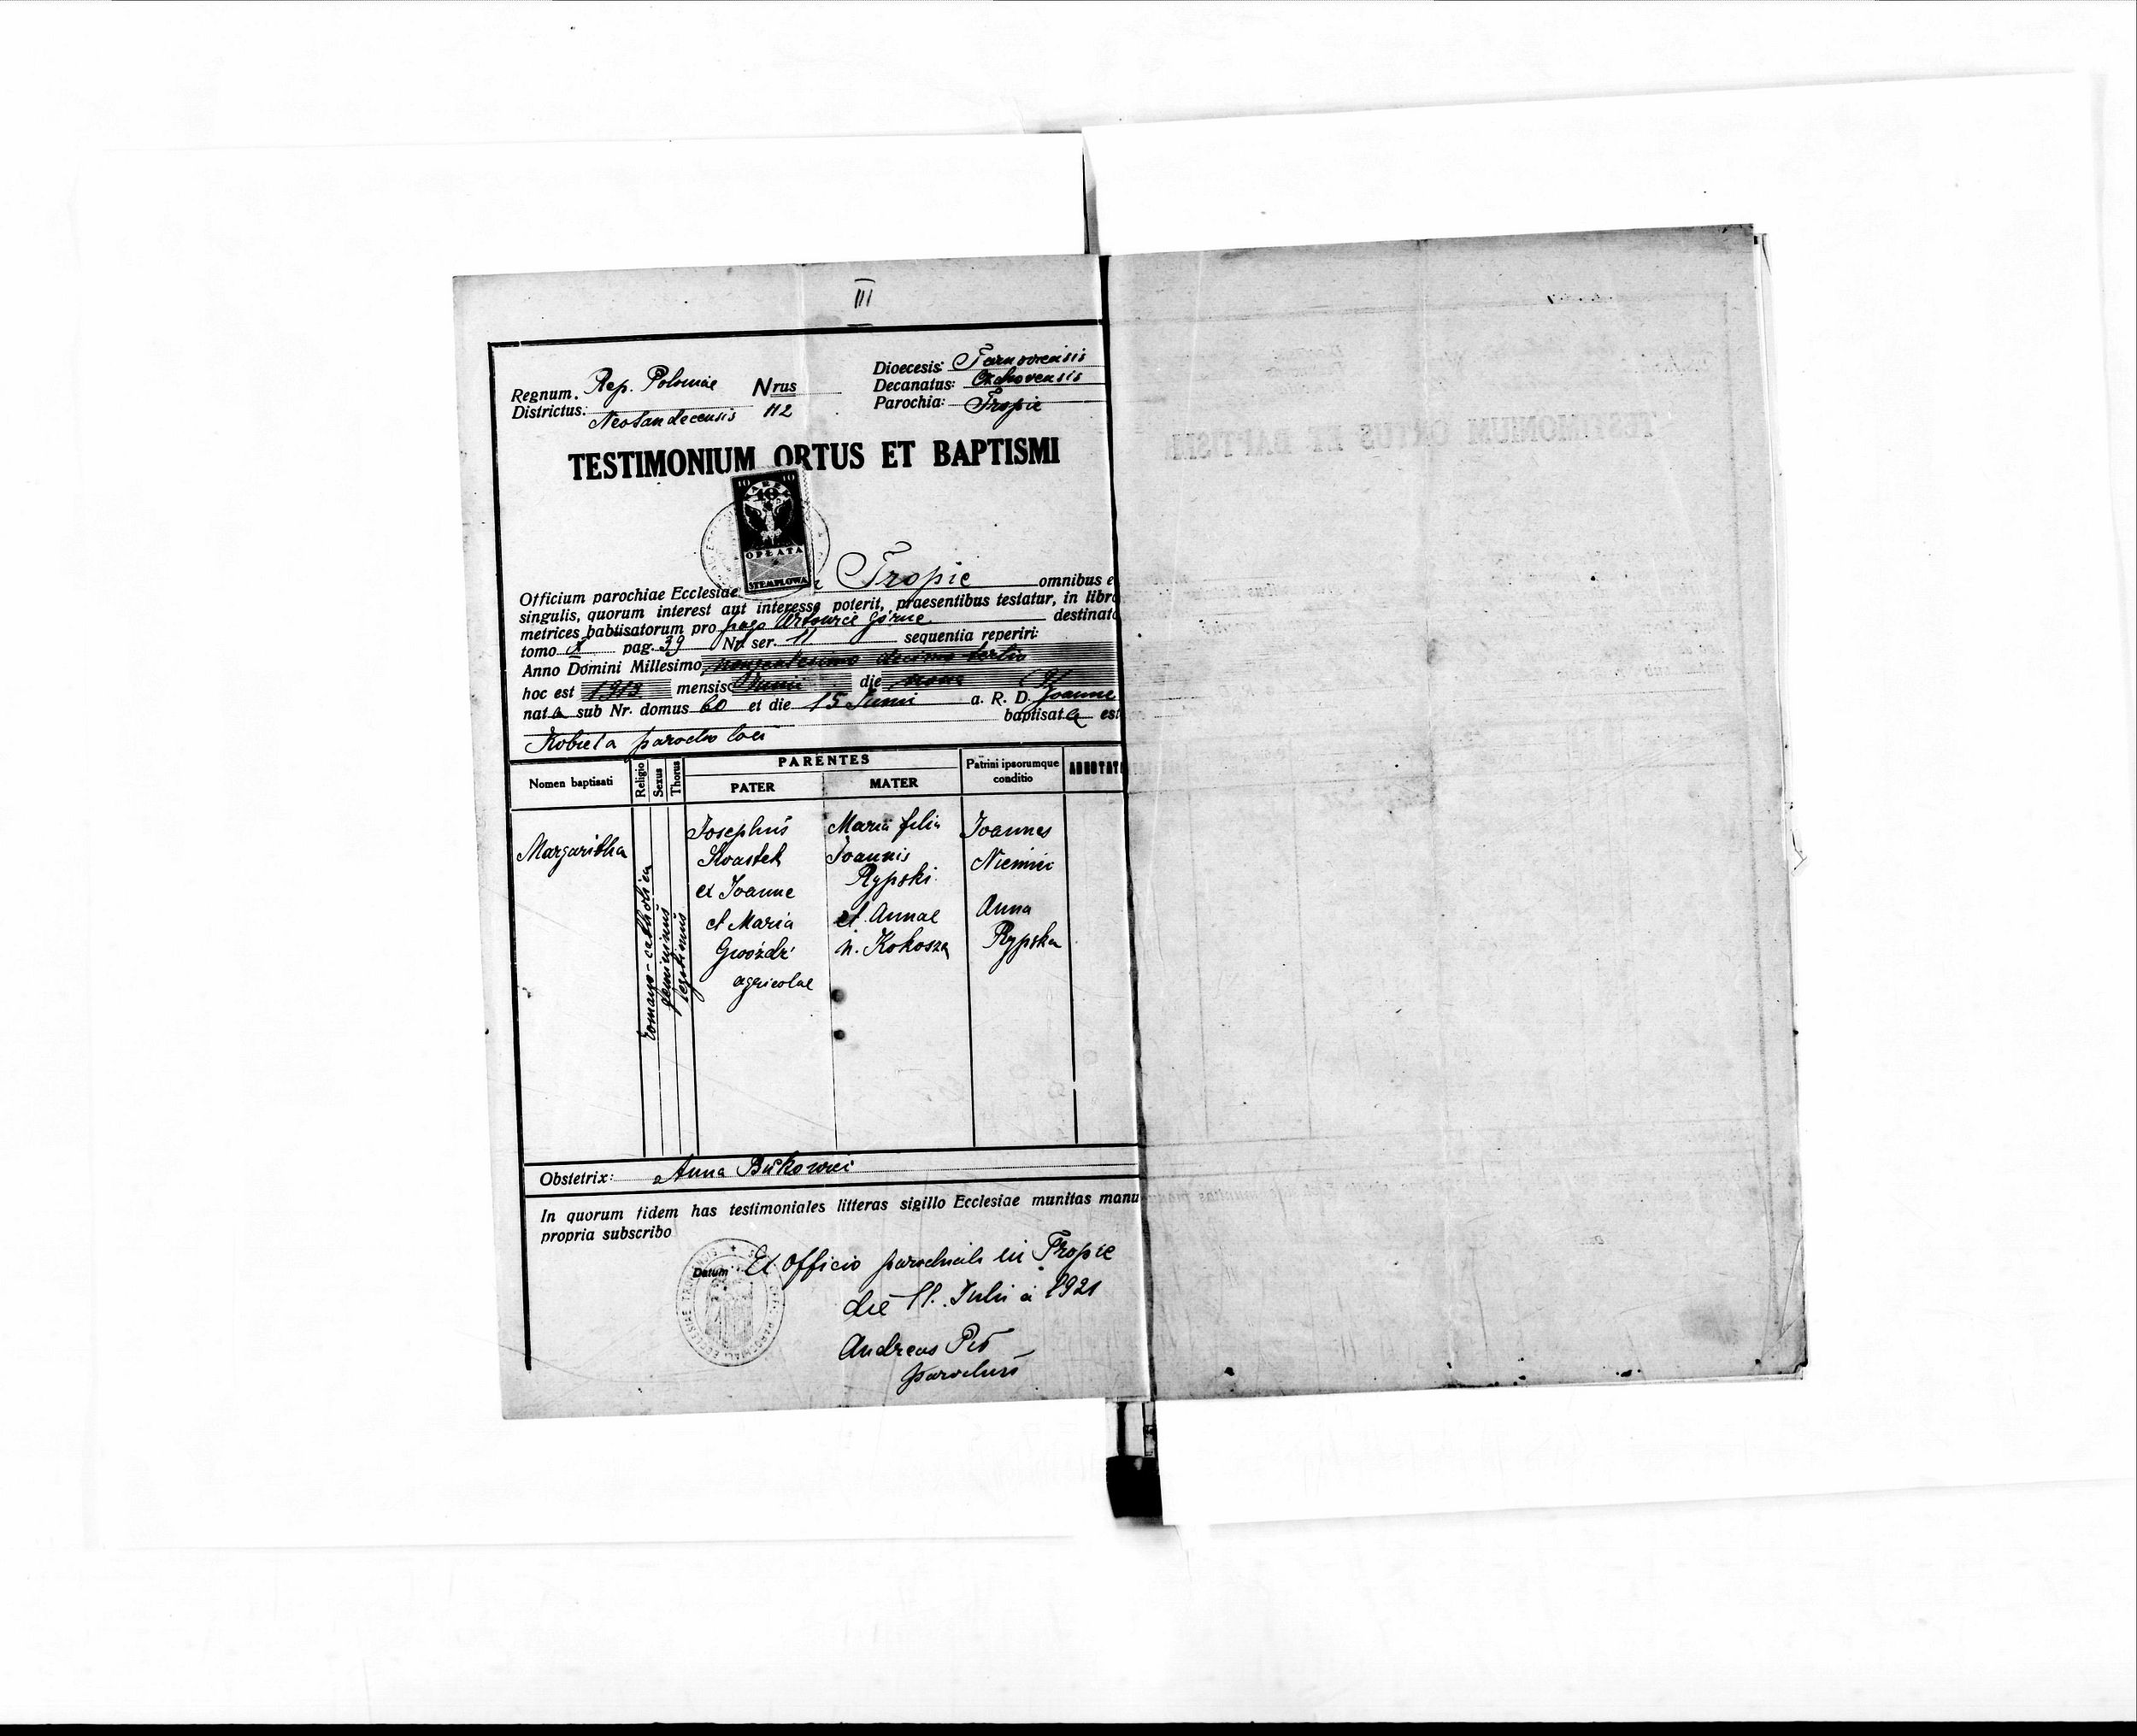 III
Regnum. Rep. Poloniae Nrus Dioecesis: Tarnoviensis
Districtus: Neosandecensis 112 Decanatus: Czchoviensis
Parochia: Tropie
TESTIMONIUM ORTUS ET BAPTISMI
10 10
OPŁATA
STEMPLOWA
Officium parochiae Ecclesiae Tropie omnibus e
singulis, quorum interest aut interesse poterit, praesentibus testatur, in libro
metrices babtisatorum pro pago Górne destinato
tomo X pag. 39 Nr ser. 11 sequentia reperiri:
Anno Domini Millesimo nongentesimo decimo tertio
hoc est 1913 mensis Junii die nona
nata sub Nr. domus 60 et die 15 Junii a. R. D. Joanne
baptisata est
Kobiela parocho loci
Nomen baptisati Religio Sexus Thorus PARENTES Patrini ipsorumque conditio
PATER MATER
Margaritha
romano-catholica
femininus
legitimus
Josephus Maria filia Joannes
Joannis
ex Joanne Rypski
et Maria et Annae Anna
Gwóźdź n. Kokosza Rypska
agricolae
Obstetrix: Anna
In quorum fidem has testimoniales litteras sigillo Ecclesiae munitas manu
propria subscribo
Datum Ex officio parochiali in Tropie
die 11. Julii a 1921
Andreas
parochus